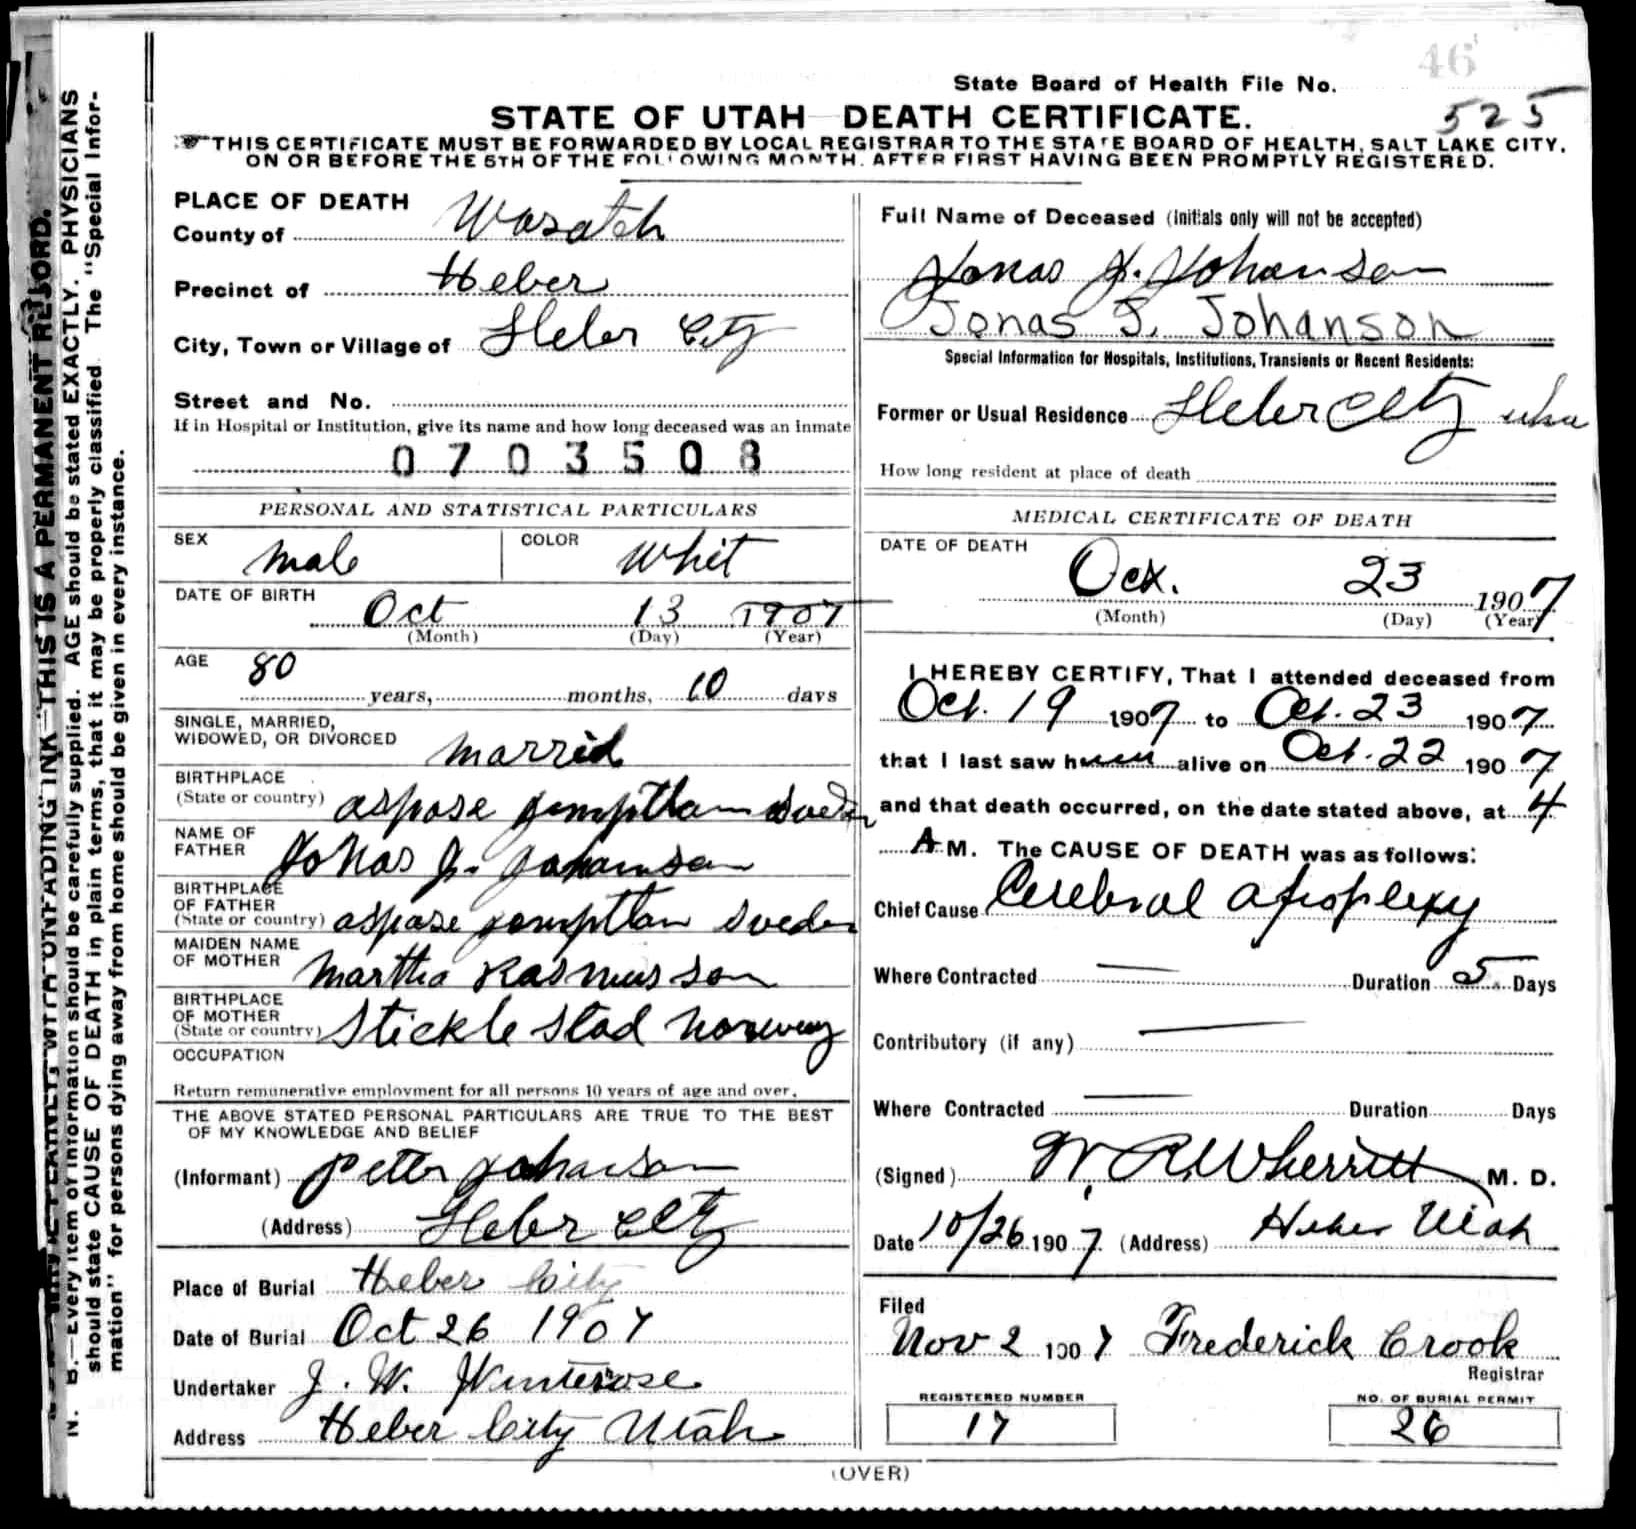 46
State Board of Health File No.
525
STATE OF UTAH DEATH CERTIFICATE.
THIS CERTIFICATE MUST BE FORWARDED BY LOCAL REGISTRAR TO THE STATE BOARD OF HEALTH, SALT LAKE CITY,
ON OR BEFORE THE 5TH OF THE FOLLOWING MONTH, AFTER FIRST HAVING BEEN PROMPTLY REGISTERED.
PLACE OF DEATH
County of Wasatch
Precinct of Heber
City, Town or Village of Heber City
Street and No.
If in Hospital or Institution, give its name and how long deceased was an inmate
0703508
PERSONAL AND STATISTICAL PARTICULARS
SEX male COLOR Whit
DATE OF BIRTH
Oct 13 1907
(Month) (Day) (Year)
AGE
80 years, months, 10 days
SINGLE, MARRIED,
WIDOWED, OR DIVORCED marrid
BIRTHPLACE
(State or country) aspase Sweden
NAME OF
FATHER Jonas J. Johanson
BIRTHPLACE
OF FATHER
(State or country) aspase Sweden
MAIDEN NAME
OF MOTHER Martha Rasmusson
BIRTHPLACE
OF MOTHER
(State or country) Stickle Stad Norway
OCCUPATION
Return remunerative employment for all persons 10 years of age and over.
THE ABOVE STATED PERSONAL PARTICULARS ARE TRUE TO THE BEST
OF MY KNOWLEDGE AND BELIEF
(Informant) Peter Johanson
(Address) Heber City
Place of Burial Heber City
Date of Burial Oct 26 1907
Undertaker J. W. Winterose
Address Heber City Utah
Full Name of Deceased (Initials only will not be accepted)
Jonas J. Johanson
Jonas J. Johanson
Special Information for Hospitals, Institutions, Transients or Recent Residents:
Former or Usual Residence Heber City
How long resident at place of death
MEDICAL CERTIFICATE OF DEATH
DATE OF DEATH
Oct. 23 1907
(Month) (Day) (Year)
I HEREBY CERTIFY, That I attended deceased from
Oct. 19 1907 to Oct. 23 1907
that I last saw him alive on Oct. 22 1907
and that death occurred, on the date stated above, at 4
A M. The CAUSE OF DEATH was as follows:
Chief Cause Cerebral Apoplexy
Where Contracted — Duration 5 Days
Contributory (if any) —
Where Contracted — Duration Days
(Signed) W. R. Wherritt M. D.
Date 10/26 1907 (Address) Heber Utah
Filed
Nov 2 1907 Frederick Crook
Registrar
REGISTERED NUMBER
17
NO. OF BURIAL PERMIT
26
(OVER)
N. B.—Every item of information should be carefully supplied. AGE should be stated EXACTLY. PHYSICIANS
should state CAUSE OF DEATH in plain terms, that it may be properly classified. The "Special Infor-
mation" for persons dying away from home should be given in every instance.
WITH UNFADING INK—THIS IS A PERMANENT RECORD.